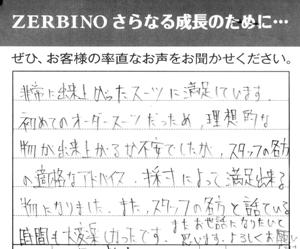 ZERBINO さらなる成長のために…
ぜひ、お客様の率直なお声をお聞かせください。
非常に出来上がったスーツに満足しています。
初めてのオーダースーツだっため、理想的な
物が出来上がるか不安でしたが、スタッフの各方
の適格なアドバイス、採寸によって満足出来る
物になりました。また、スタッフの各方と話ている
時間も大変楽しかったです。またお世話になりたいと
思います。よろしくお願い